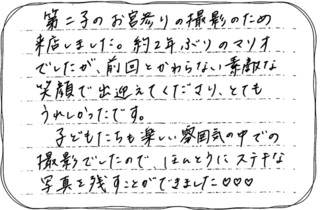 第二子のお宮参りの撮影のため
来店しました。約2年ぶりのマリオ
でしたが、前回とかわらない素敵な
笑顔で出迎えてくださり、とても
うれしかったです。
子どもたちも楽しい雰囲気の中での
撮影でしたので、ほんとうにステキな
写真を残すことができました♡♡♡